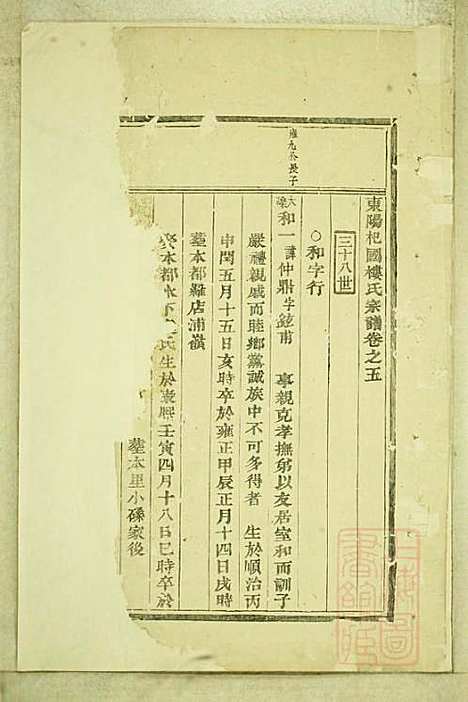 東陽杞國樓氏宗譜卷之五
三十八世
○和字行
雍九公長子
和一 諱仲鼎字鉉甫 事親克孝撫弟以友居室和而訓子
嚴禮親戚而睦鄉黨誠族中不可多得者 生於順治丙
申閏五月十五日亥時卒於雍正甲辰正月十四日戌時
墓本都羅店浦嶺
娶本都 下 氏生於康熙壬寅四月十八日巳時卒於
墓本里小磜家後